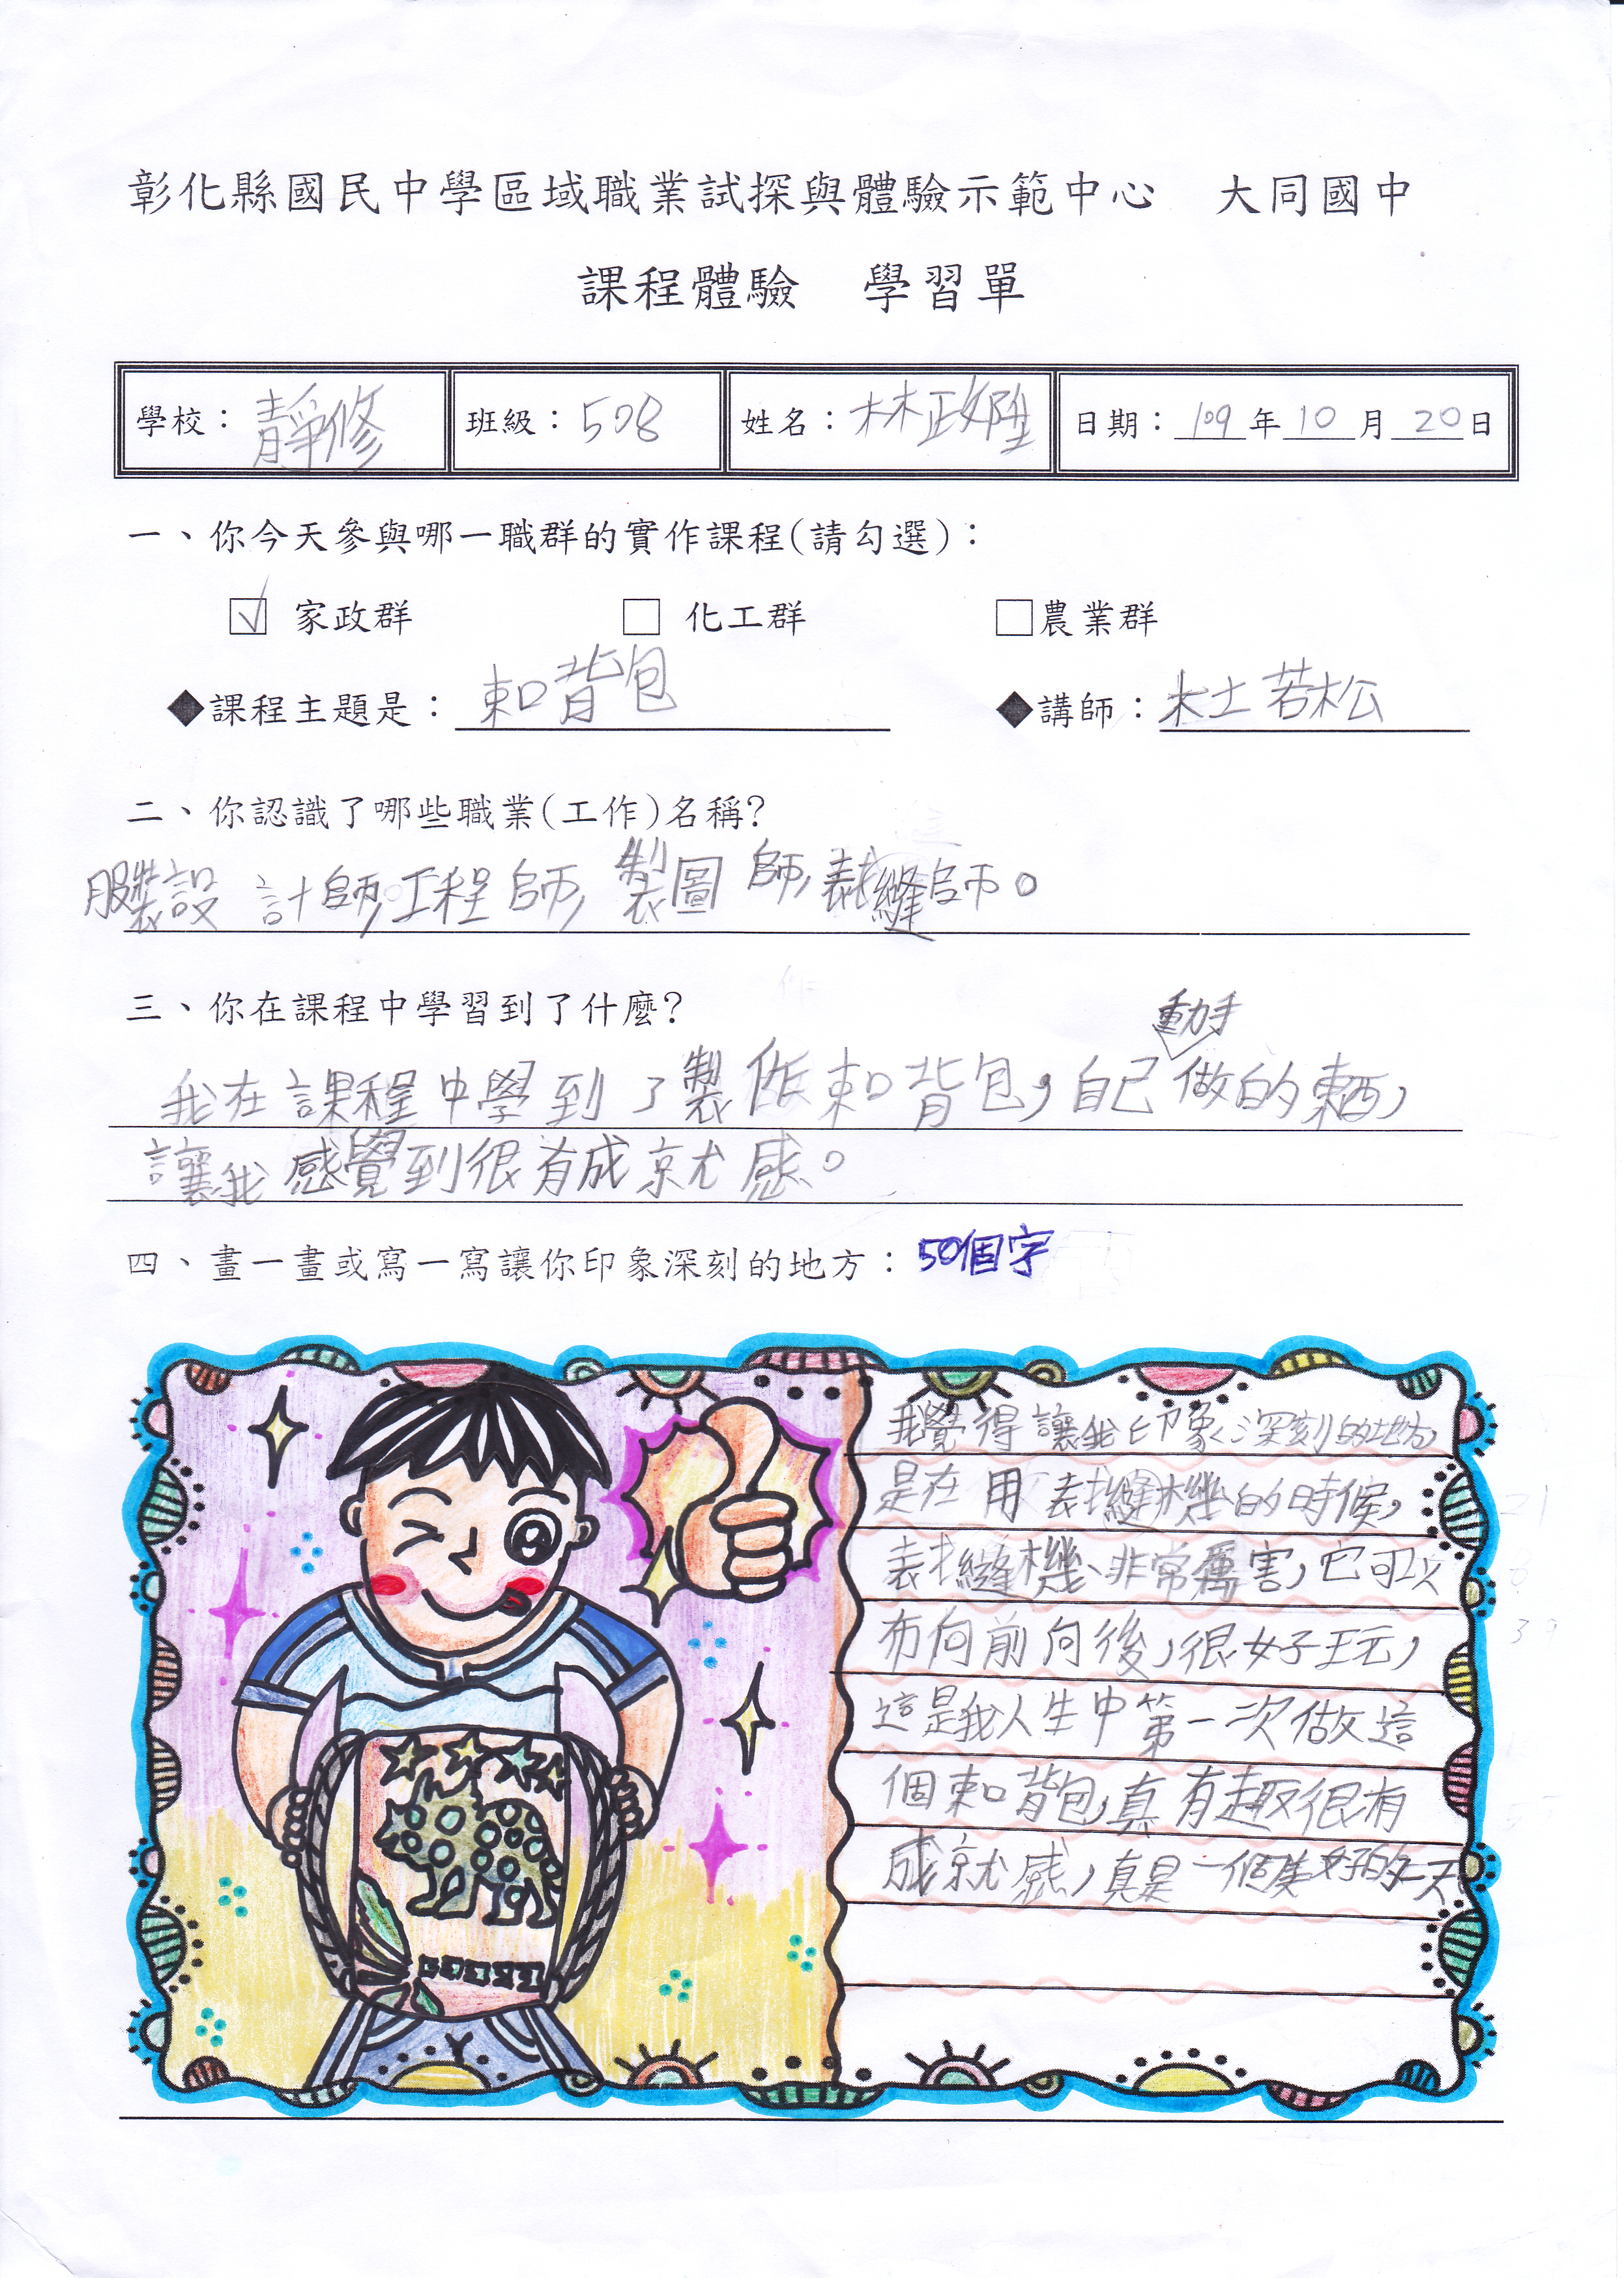 彰化縣國民中學區域職業試探與體驗示範中心 大同國中
課程體驗 學習單
學校：靜修 班級：508 姓名：林政陞 日期：109年10月20日
一、你今天參與哪一職群的實作課程(請勾選)：
☑ 家政群 □ 化工群 □農業群
◆課程主題是：束口背包 ◆講師：杜若松
二、你認識了哪些職業(工作)名稱?
服裝設計師,工程師,製圖師,裁縫師。
三、你在課程中學習到了什麼?
動手
我在課程中學到了製作束口背包,自己做的東西,
讓我感覺到很有成就感。
四、畫一畫或寫一寫讓你印象深刻的地方：50個字
我覺得讓我印象深刻的地方,
是在用裁縫機的時候,
裁縫機非常厲害,它可以
布向前向後,很好玩,
這是我人生中第一次做這
個束口背包,真有趣很有
成就感,真是一個美好的一天